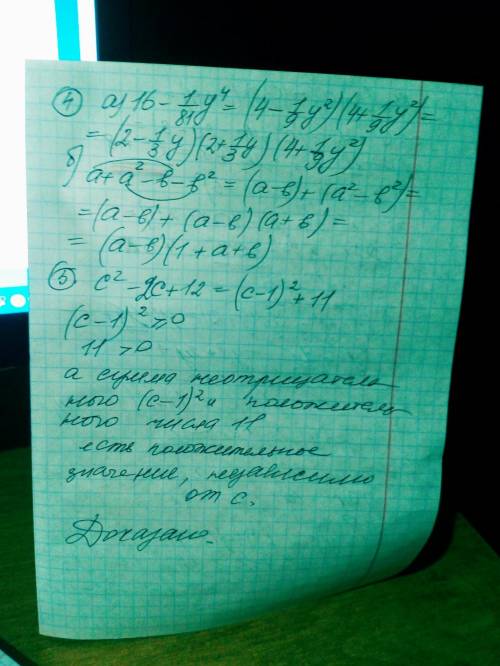 ④ а) 16 - 1/81 y⁴ = (4 - 1/9 y²)(4 + 1/9 y²) =
= (2 - 1/3 y)(2 + 1/3 y)(4 + 1/9 y²)
б) а + а² - в - в² = (а-в) + (а² - в²) =
= (а-в) + (а-в)(а+в) =
= (а-в)(1 + а + в)
⑤ с² - 2с + 12 = (с-1)² + 11
(с-1)² ≥ 0
11 > 0
а сумма неотрицатель
ного (с-1)² и положитель
ного числа 11
есть положительное
значение, независимо
от с.
Доказано.